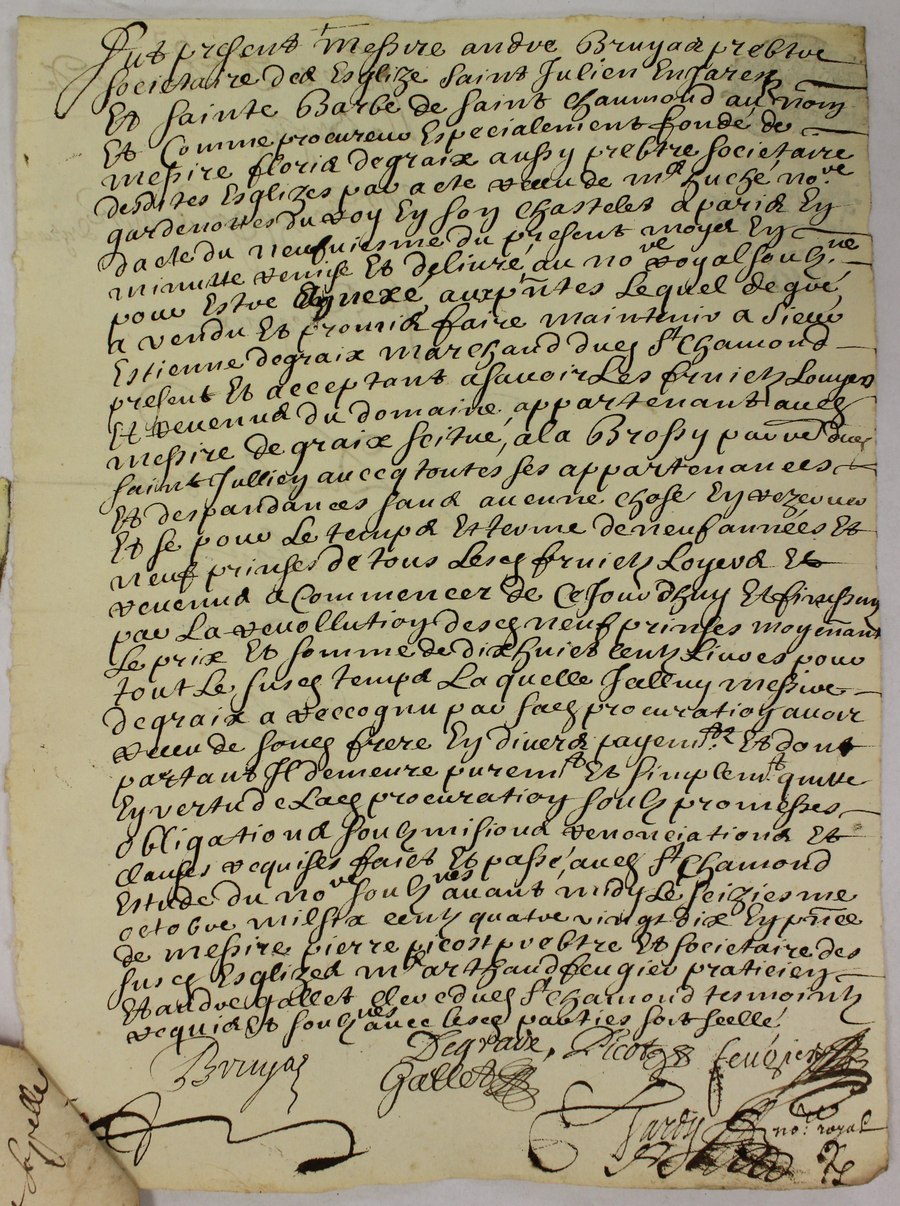 Fut present messire andre Bruyas prebtre
societaire des Esglize saint Julien En Jarest
Et sainte Barbe de saint chaumond au nom
Et Comme procureur Especialement fondé de
messire floris degraix aussy prebtre societaire
desdites Esglizes par acte receu de mr huché nore
gardenottes du roy En son chastelet a paris En
dacte du neufuiesme du present moys En
minutte remise Et deliuré au nore royal soubne
pour Estre Annexé, aux pntes Lequel de gré
a vendu Et promis faire maintenir a sieur
Estienne degraix marchand dud St chamond
present Et acceptant asavoir Les fruictz Louyers
Et revenus du domaine appartenant aud
messire degraix scitué, a la Brossy parre dud
saint Jullien avecq toutes ses appartenances
Et despandances sans aucune chose En rezerver
Et se pour Le temps Et terme de neuf années Et
neuf prinses de tous Lesd fruictz Loyers Et
revenus a Commencer de Ce Jourdhuy Et finissans
par La revollution desd neuf prinses moyennant
Le prix Et somme de dix huict centz Liures pour
tout Le susd temps Laquelle Jcelluy messire
degraix a reccognu par sad procuration avoir
receu de soud frere En divers payemts. Et dont
partant Jl demeure puremt Et simplemt quitte
En vertu de Lad procuration soubz promesses
obligations soubzmisions renonciations Et
clauses requises faict Et passé, aud St Chamond
Estude du nore soubznes avant midy Le seiziesme
octobre mil six centz quatre vingt dix En pnce
de messire pierre picost prebtre Et societaire des
susd Esglizes mr arthaud feugier praticien
Et andre gallet clerc dud St chamond tesmointz
requis Et soubznes avec lesd parties soit scellé
Bruyas Degraix, Picot feugier
Gallet
Tardy no: royal